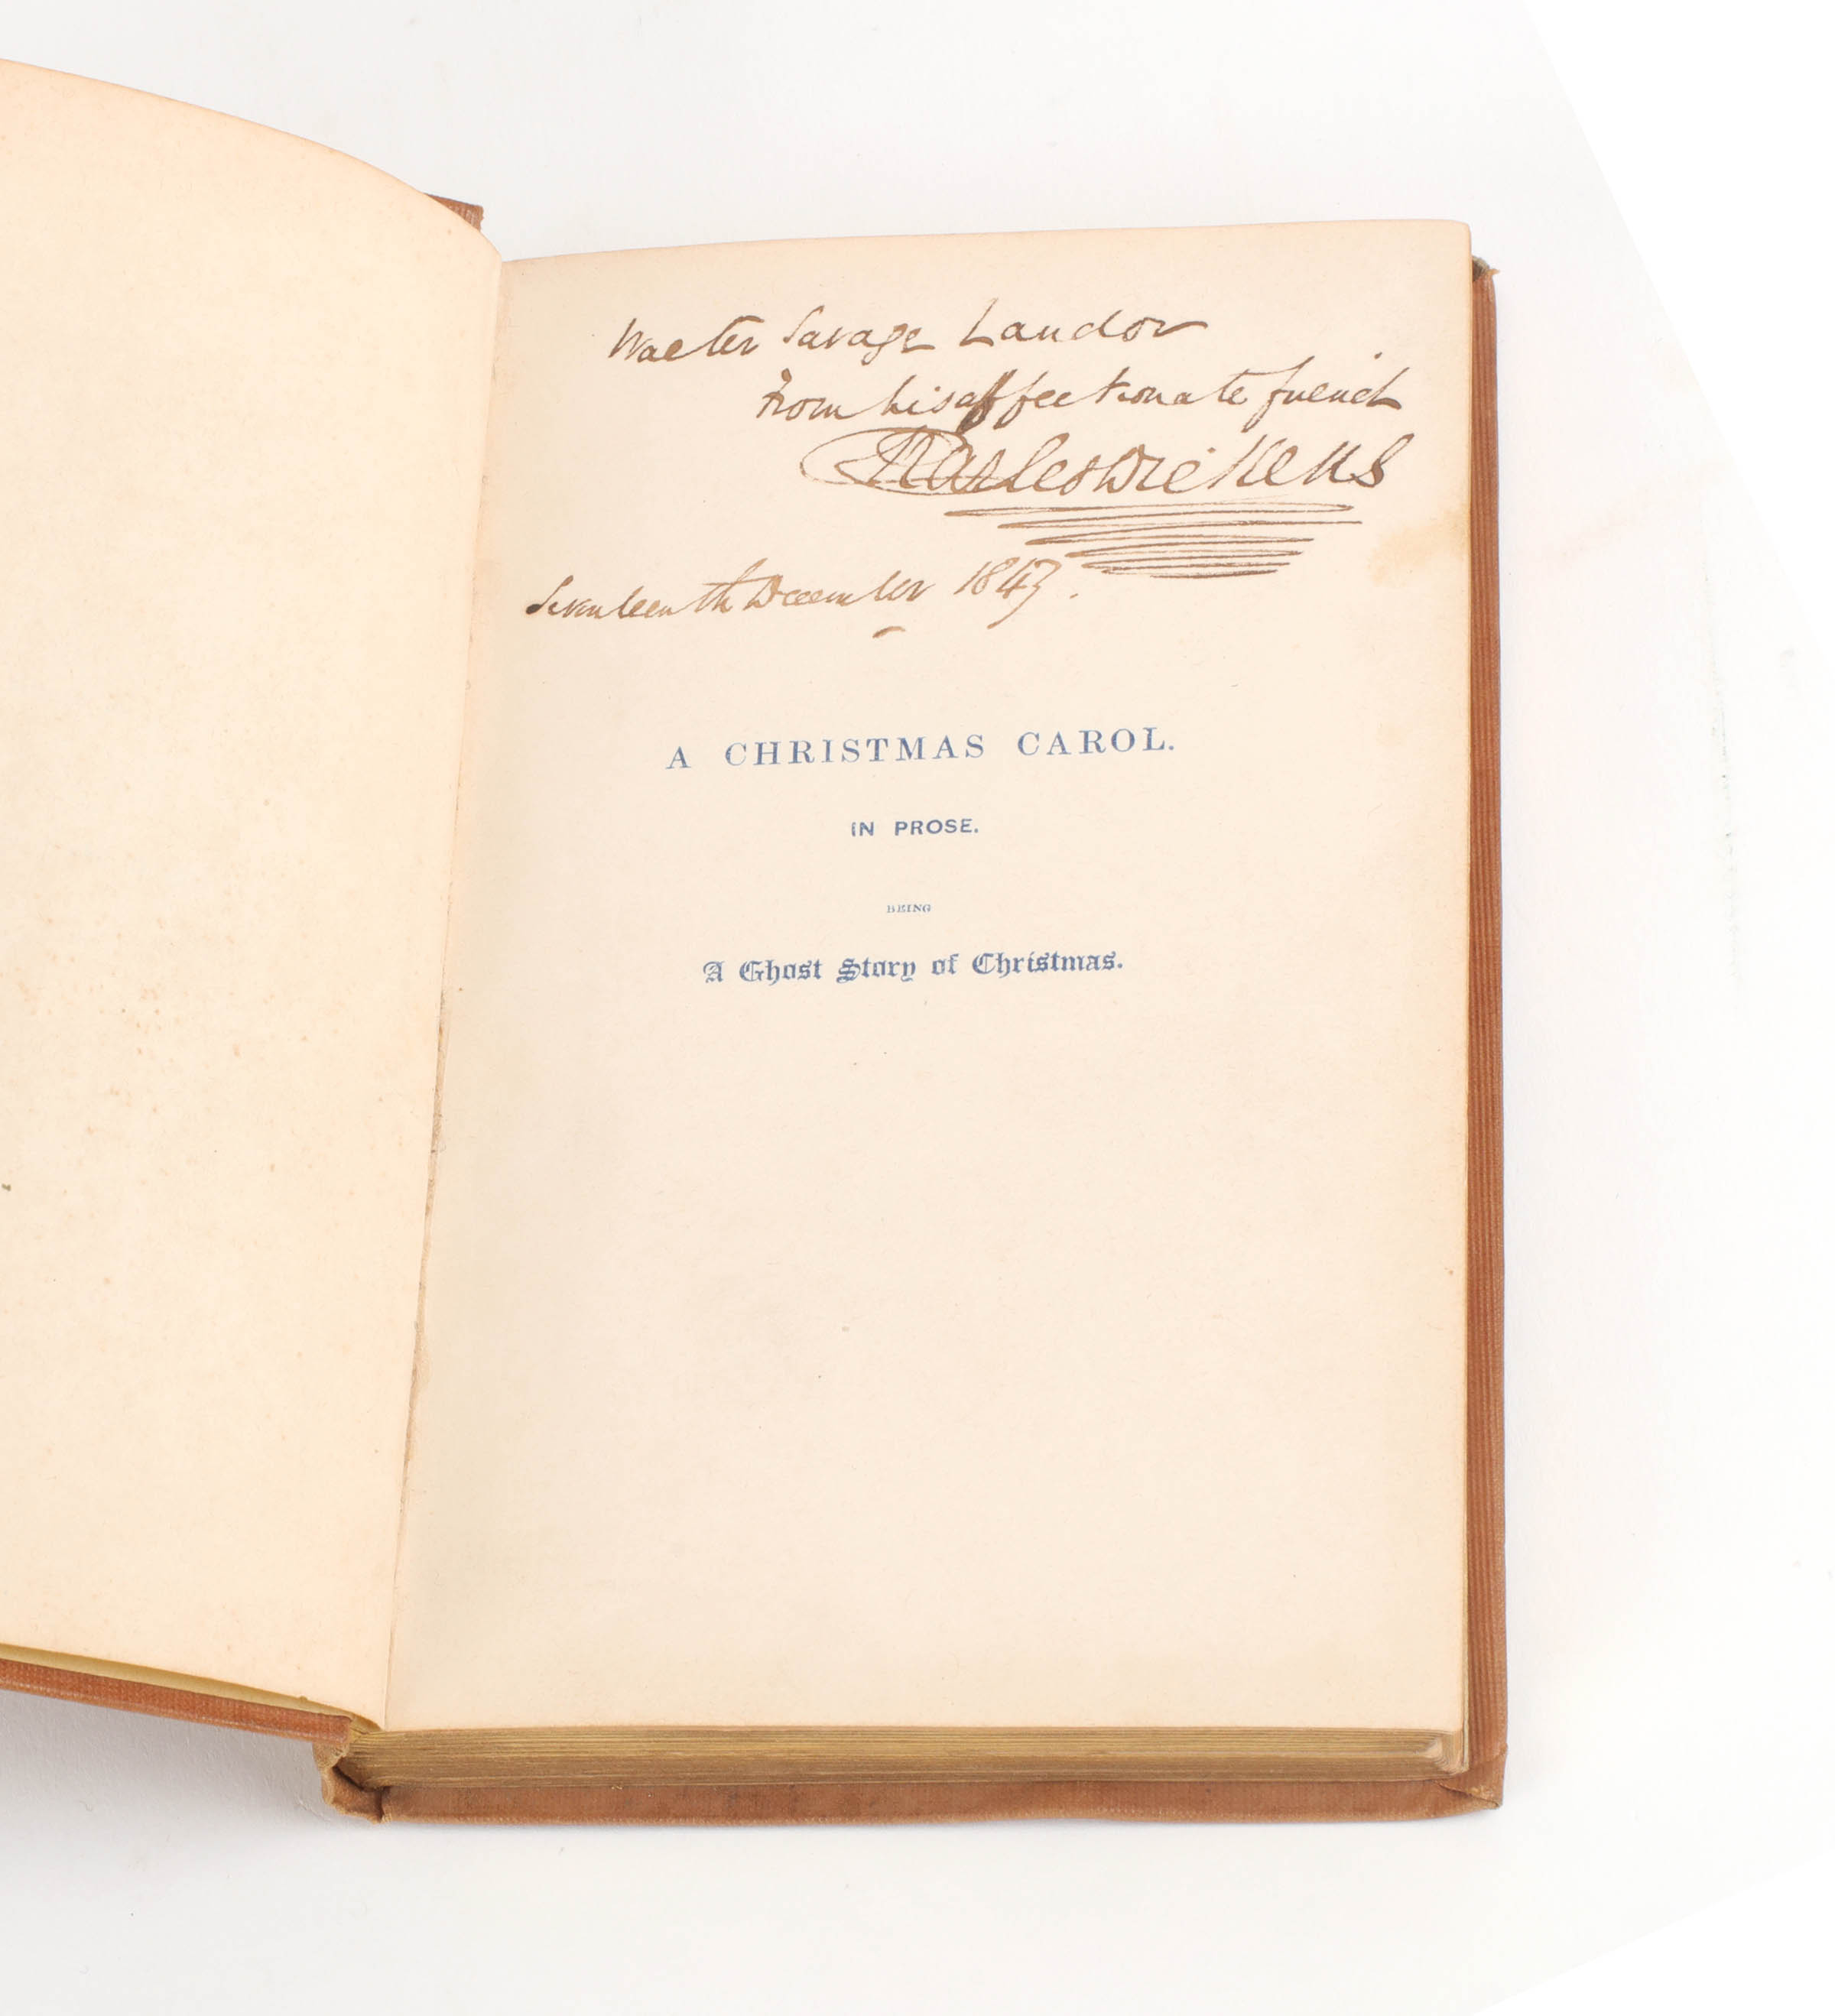 Walter Savage Landor
From his affectionate friend
Charles Dickens
Seventeenth December 1843.
A CHRISTMAS CAROL.
IN PROSE.
BEING
A Ghost Story of Christmas.